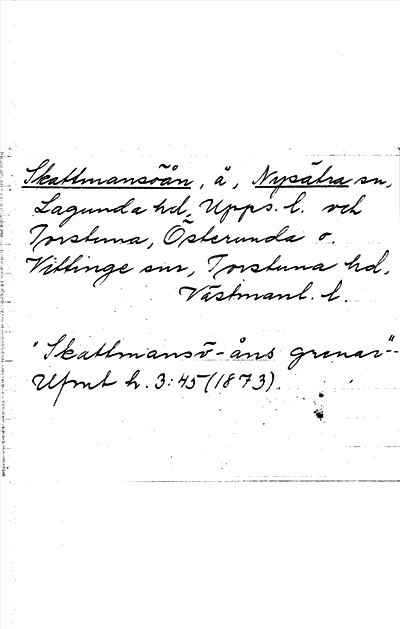 Skattmansöån, å, Nysätra sn,
Lagunda hd, Upps. l. och
Torstuna, Österunda o.
Vittinge snr, Torstuna hd,
Västmanl. l.
"Skattmansö-åns grenar"-
Ufmt h. 3:45 (1873).